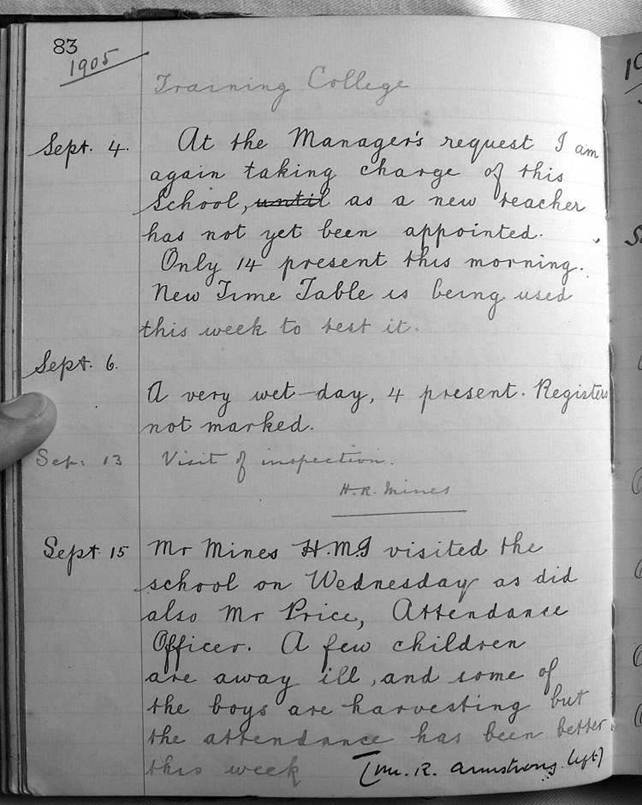 83
1905
Training College
Sept. 4. At the Manager's request I am
again taking charge of this
School, until as a new teacher
has not yet been appointed.
Only 14 present this morning.
New Time Table is being used
this week to test it.
Sept. 6.
A very wet day, 4 present. Registers
not marked.
Sep. 13 Visit of inspection.
H.R. Mines
Sept 15 Mr Mines H.M.I visited the
school on Wednesday as did
also Mr Price, Attendance
Officer. A few children
are away ill, and some of
the boys are harvesting but
the attendance has been better
this week (Mr. R. Armstrong left)
19